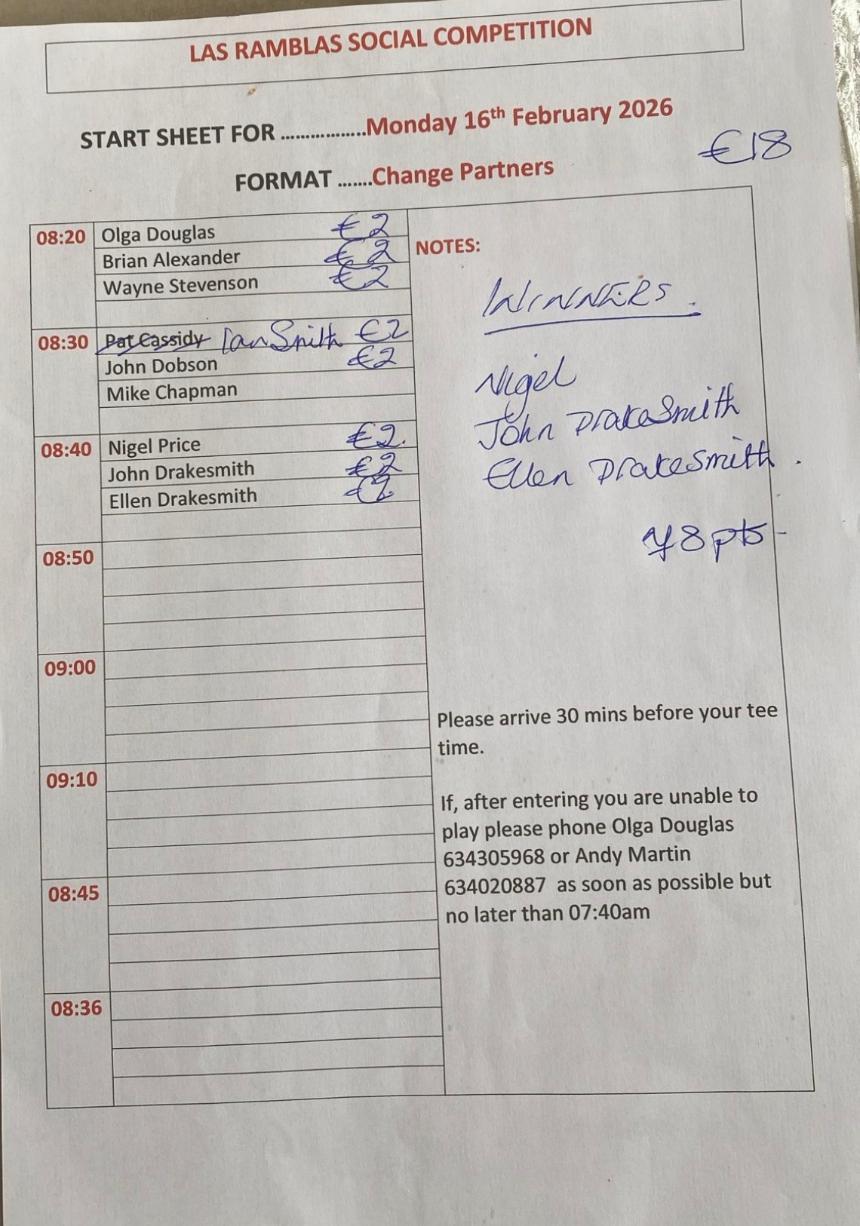 LAS RAMBLAS SOCIAL COMPETITION
START SHEET FOR ................Monday 16th February 2026
€18
FORMAT .......Change Partners
08:20 Olga Douglas €2
Brian Alexander €2
Wayne Stevenson €2
NOTES:
WINNERS.
08:30 Pat Cassidy Ian Smith €2
John Dobson €2
Mike Chapman
Nigel
John DrakeSmith
Ellen DrakeSmith.
48pts-
08:40 Nigel Price €2.
John Drakesmith €2
Ellen Drakesmith €2
08:50
09:00
09:10
08:45
08:36
Please arrive 30 mins before your tee
time.
If, after entering you are unable to
play please phone Olga Douglas
634305968 or Andy Martin
634020887 as soon as possible but
no later than 07:40am